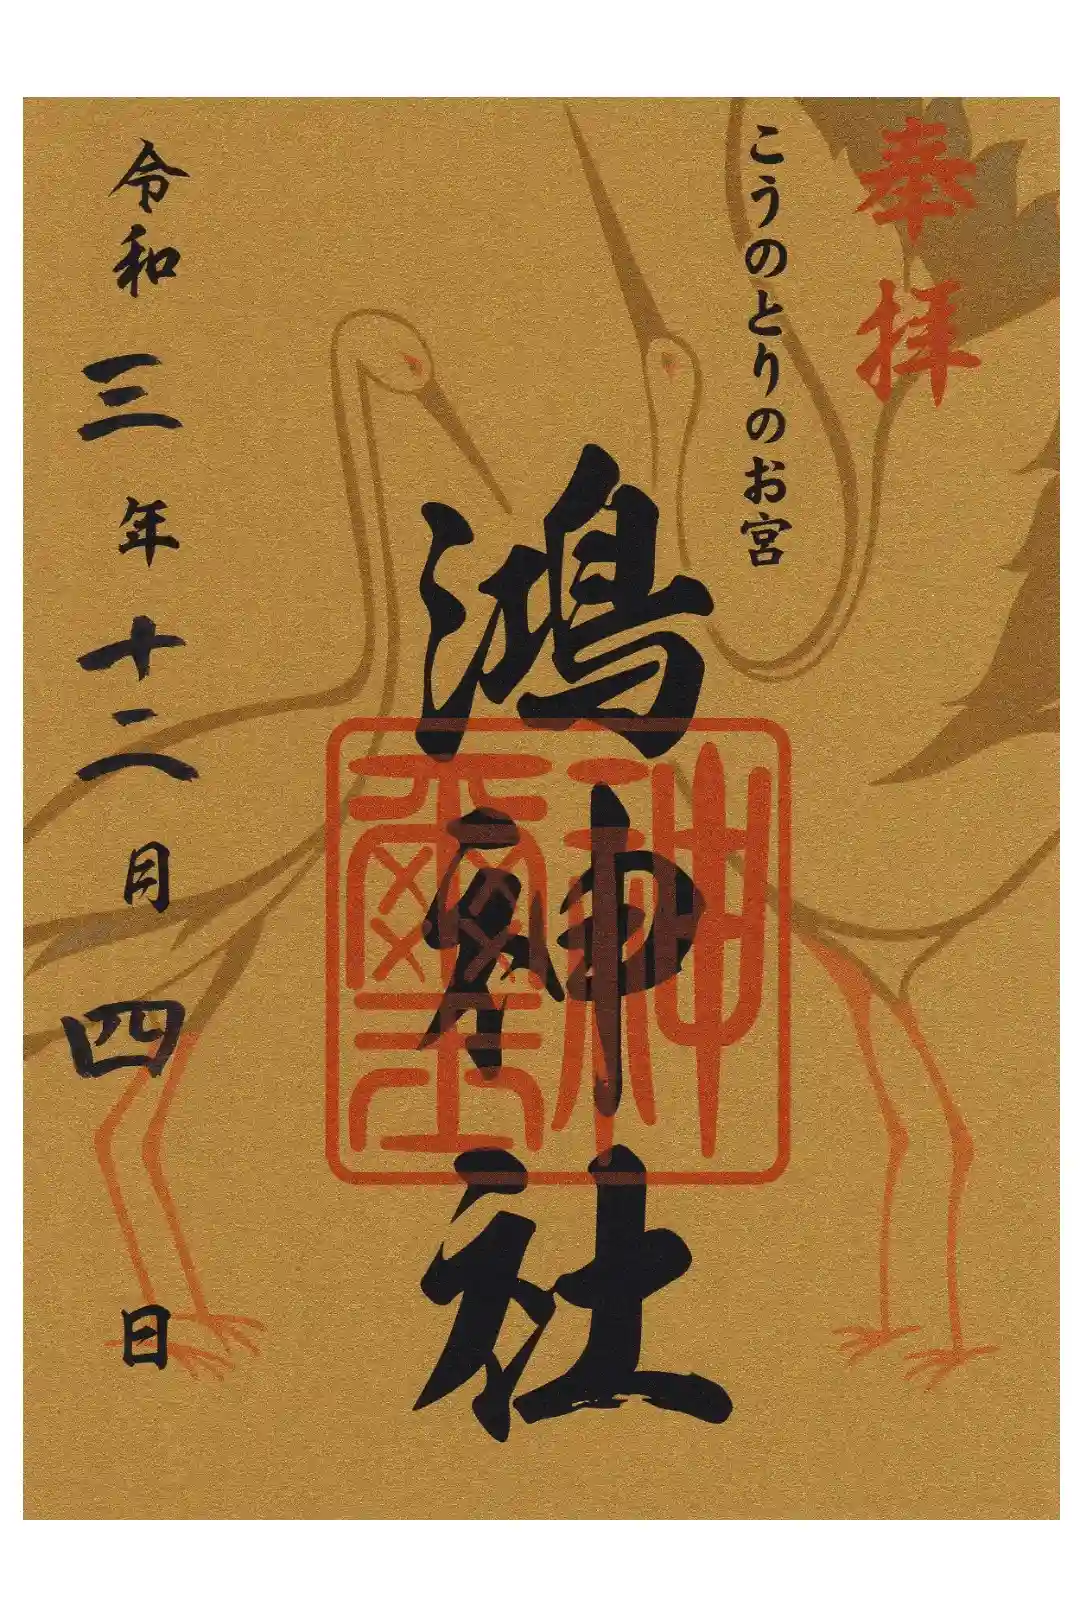 奉拝
こうのとりのお宮
鴻神社
神璽
令和三年十二月四日